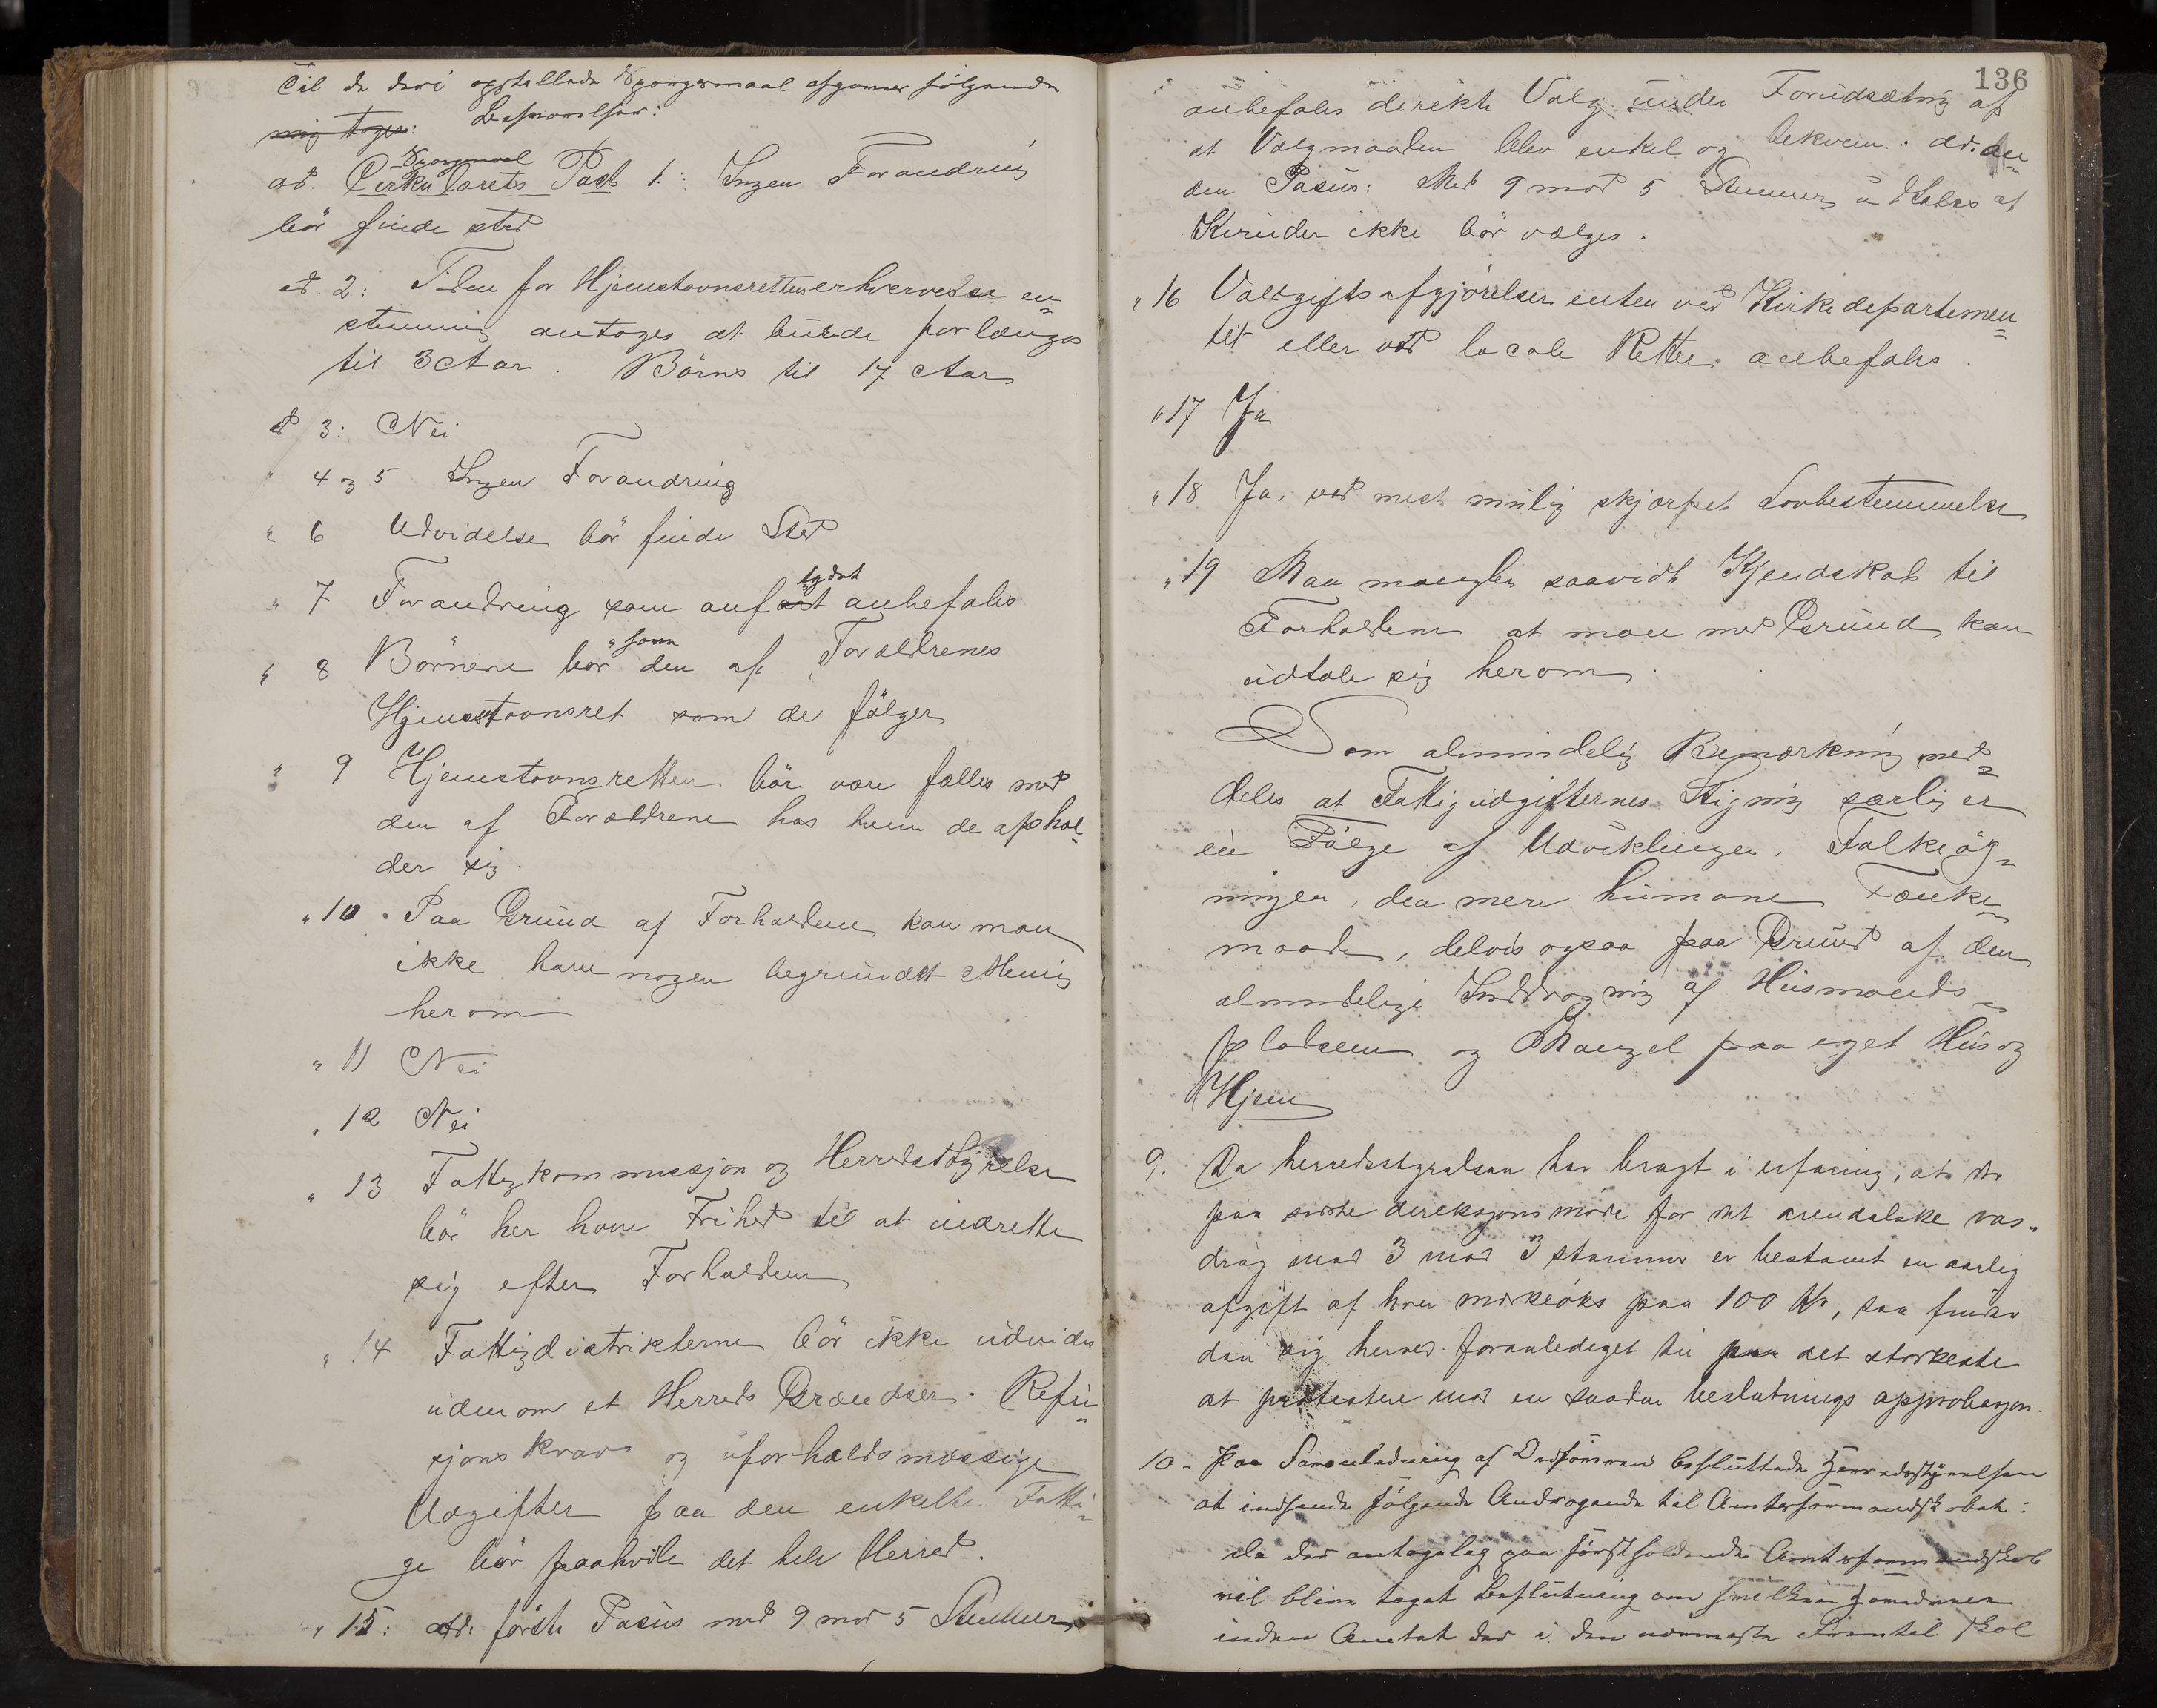 Til de deri opstillede Spørgsmaal afgaves følgende
mig toges: Besvarelser:
Spørgsmaal
ad. Cirkulærets Post 1: Ingen Forandring
bör finde sted
ad. 2: Tiden for Hjemstavnsrettens erhvervelse en=
stemmig antages at burde forlænges
til 3 Aar. Börns til 17 Aar
ad 3: Nei
" 4 og 5 Ingen Forandring
" 6 Udvidelse bör finde Sted
" 7 Forandring som anført anbefales
" 8 Börnene bör den af Forældrenes
Hjemstavnsret som de fölger
" 9 Hjemstavnsretten bör være fælles med
den af Forældrene hos hvem de ophol=
der sig.
" 10 . Paa Grund af Forholdene kan man
ikke have nogen begrundet Mening
herom
" 11 Nei
" 12 Nei
" 13 Fattigkommissjon og Herredsstyrelse
bör her have Frihed til at indrette
sig efter Forholdene
" 14 Fattigdistrikterne bör ikke udvides
udenom et Herreds Grændser. Refu=
sjonskrav og uforholdsmæssige
Udgifter paa den enkelte Fatti=
ge bör paahvile det hele Herred.
" 15: ad. förste Pasus med 9 mod 5 Stemmer
136
anbefales direkte Valg under Forudsætning af
at Valgmaaden blev enkel og bekvem. ad. an=
den Pasus: Med 9 mod 5 Stemmer udtales at
Kvinder ikke bör vælges.
" 16 Voldgiftsafgjörelser enten ved Kirkedepartemen=
tet eller ved locale Retter anbefales.
" 17 Ja
" 18 Ja, ved mest mulig skjærpet Lovbestemmelse
" 19 Man mangler saavidt Kjendskab til
Forholdene at man med Grund kan
udtale sig herom.
Som almindelig Bemærkning med=
deles at Fattigudgifternes Stigning særlig er
en Fölge af Udviklingen, Folkeög=
ningen, den mere humane Tænke=
maade, delvis ogsaa paa Grund af den
almindelige Inddragning af Husmands=
pladsene og Mangel paa eget Hus og
Hjem
9. Da herredsstyrelsen har bragt i erfaring, at der
paa sidste direksjonsmöde for det arendalske vas=
drag med 3 mod 3 stemmer er bestemt en aarlig
afgift af hver paa 100 Kr, saa finder
den sig herved foranlediget til paa det stærkeste
at protestere mod en saadan beslutnings approbasjon.
10. Paa Foranledning af Ordföreren besluttede Herredsstyrelsen
at indsende fölgende Andragende til Amtsformandskabet:
da der antagelig paa förstholdende Amtsformandskab
vil blive taget Beslutning om hvilke
inden Amtet der i den nærmeste Fremtid skal